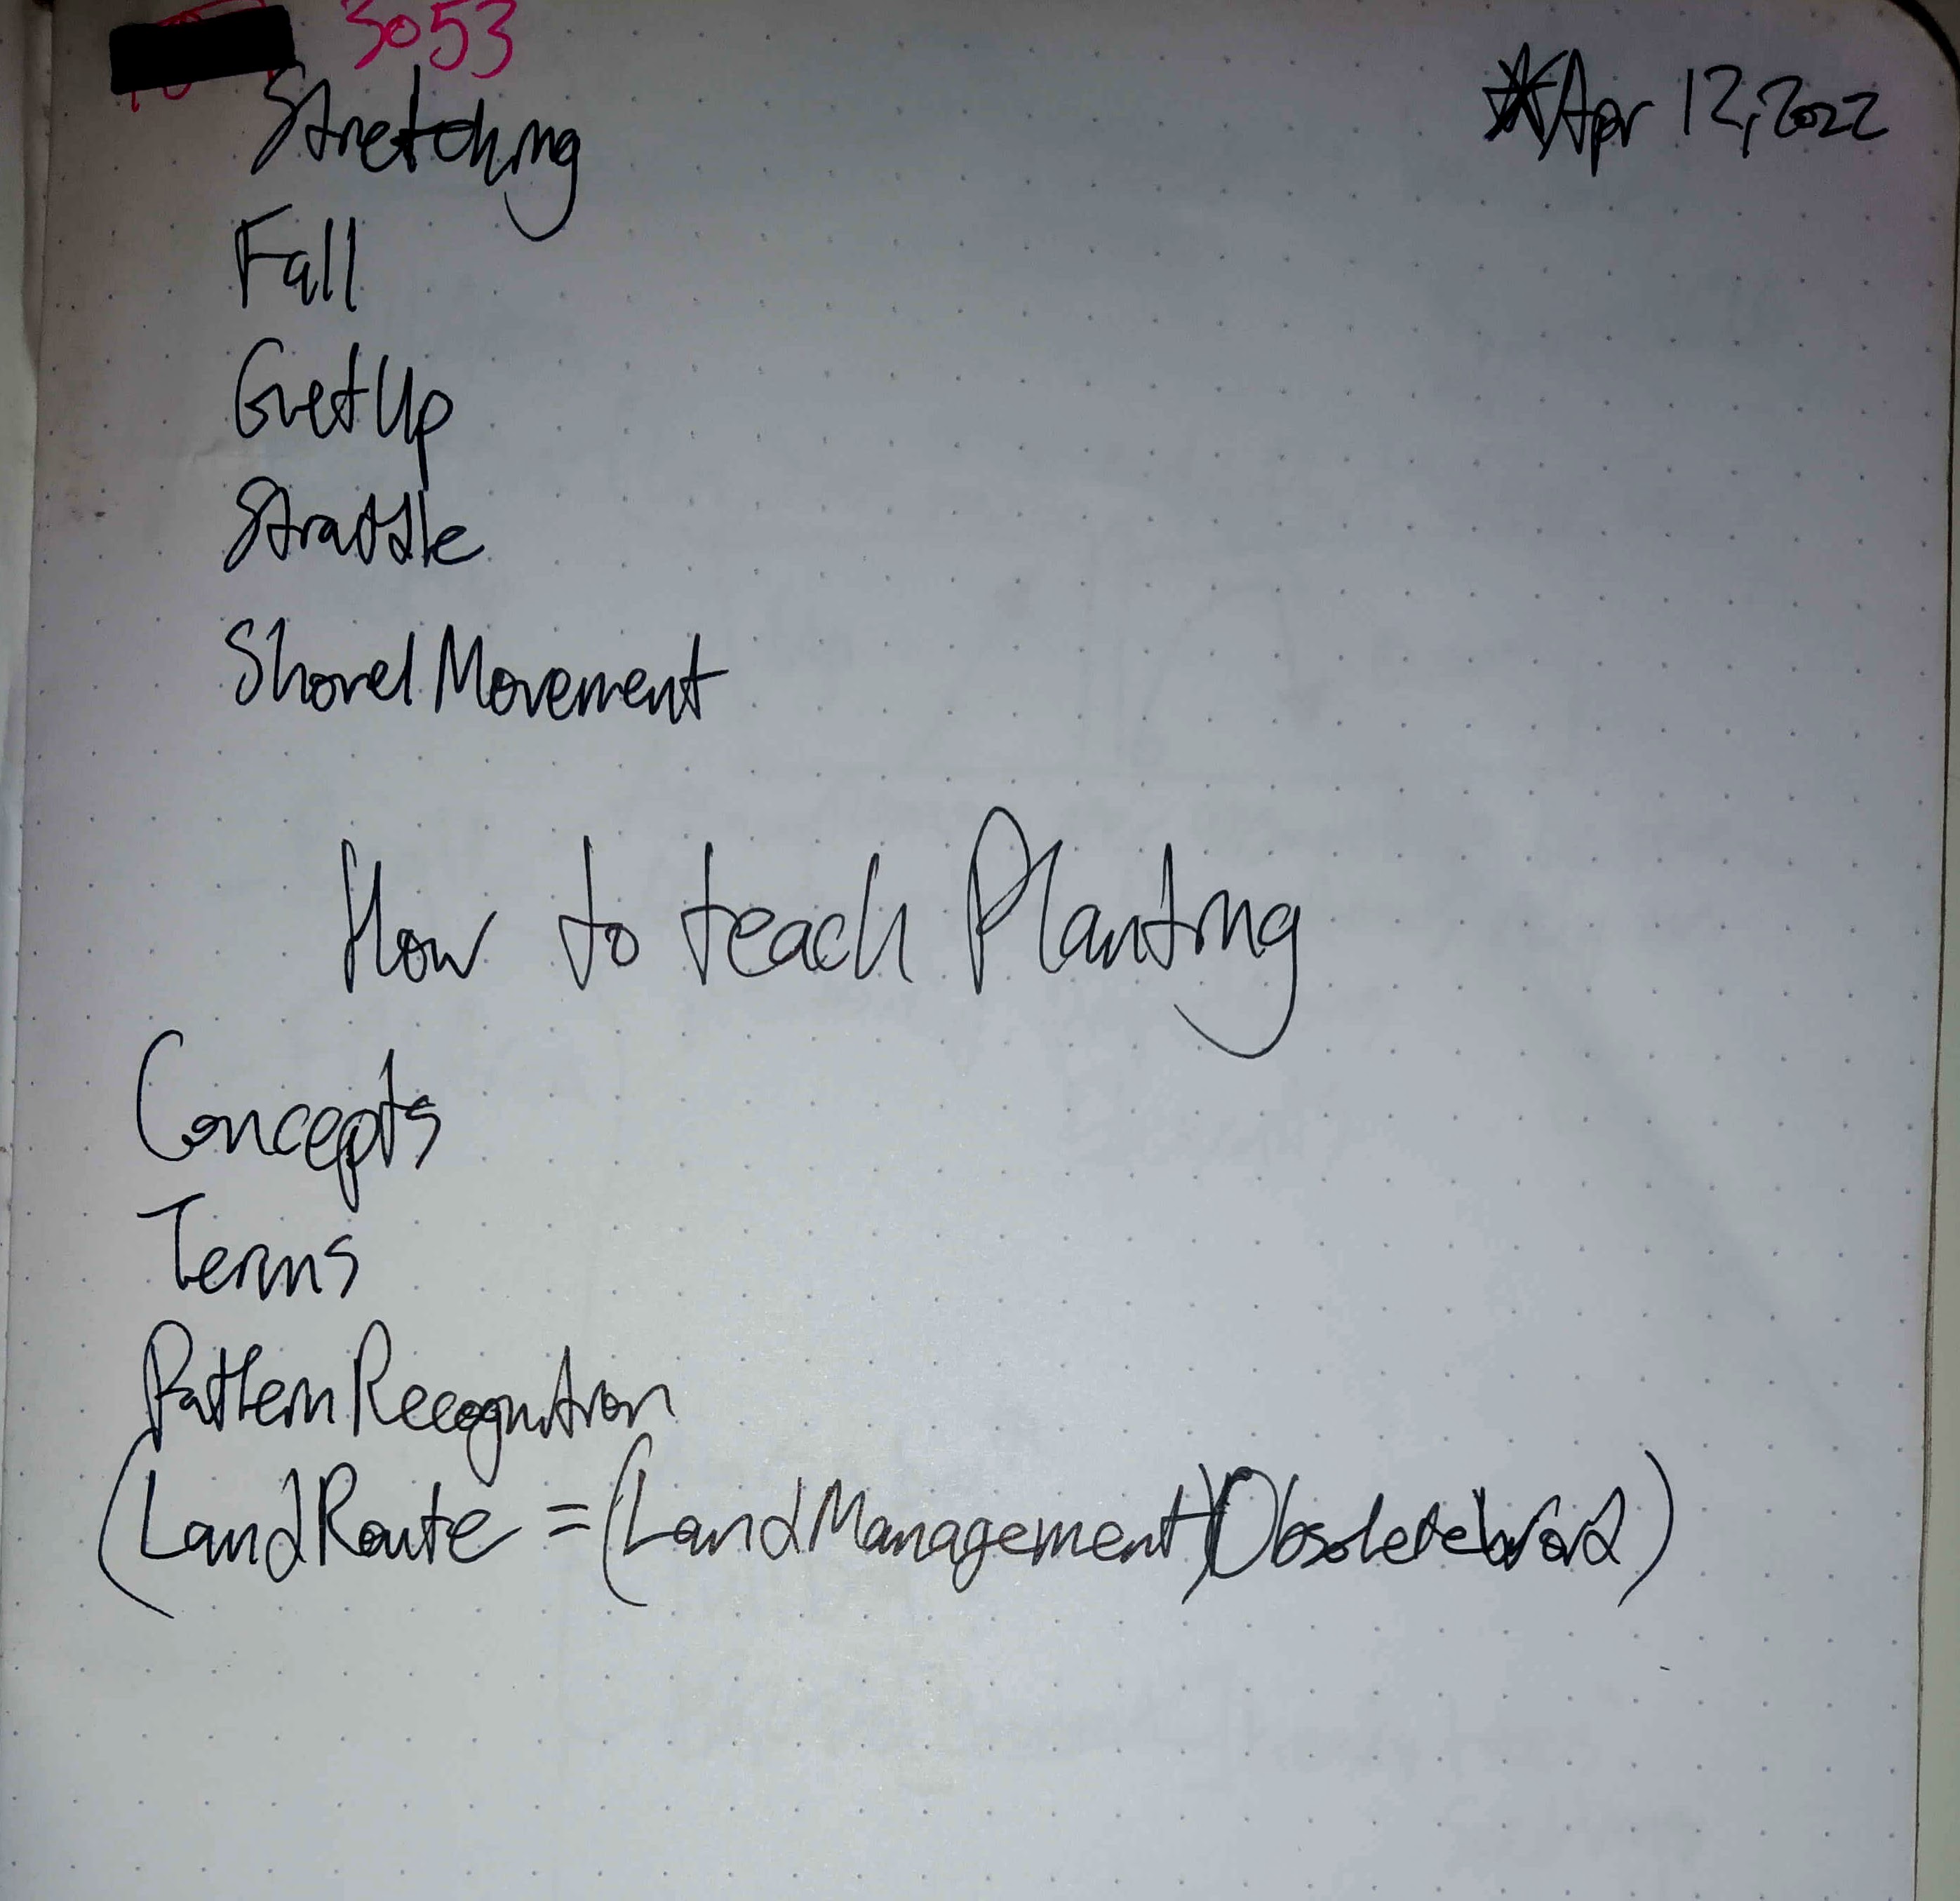 3053
*Apr 12, 2022
Stretching
Fall
Get Up
Straddle
Shovel Movement
How to teach Planting
Concepts
Terms
Pattern Recognition
(Land Route = (Land Management) Obsolete Word)